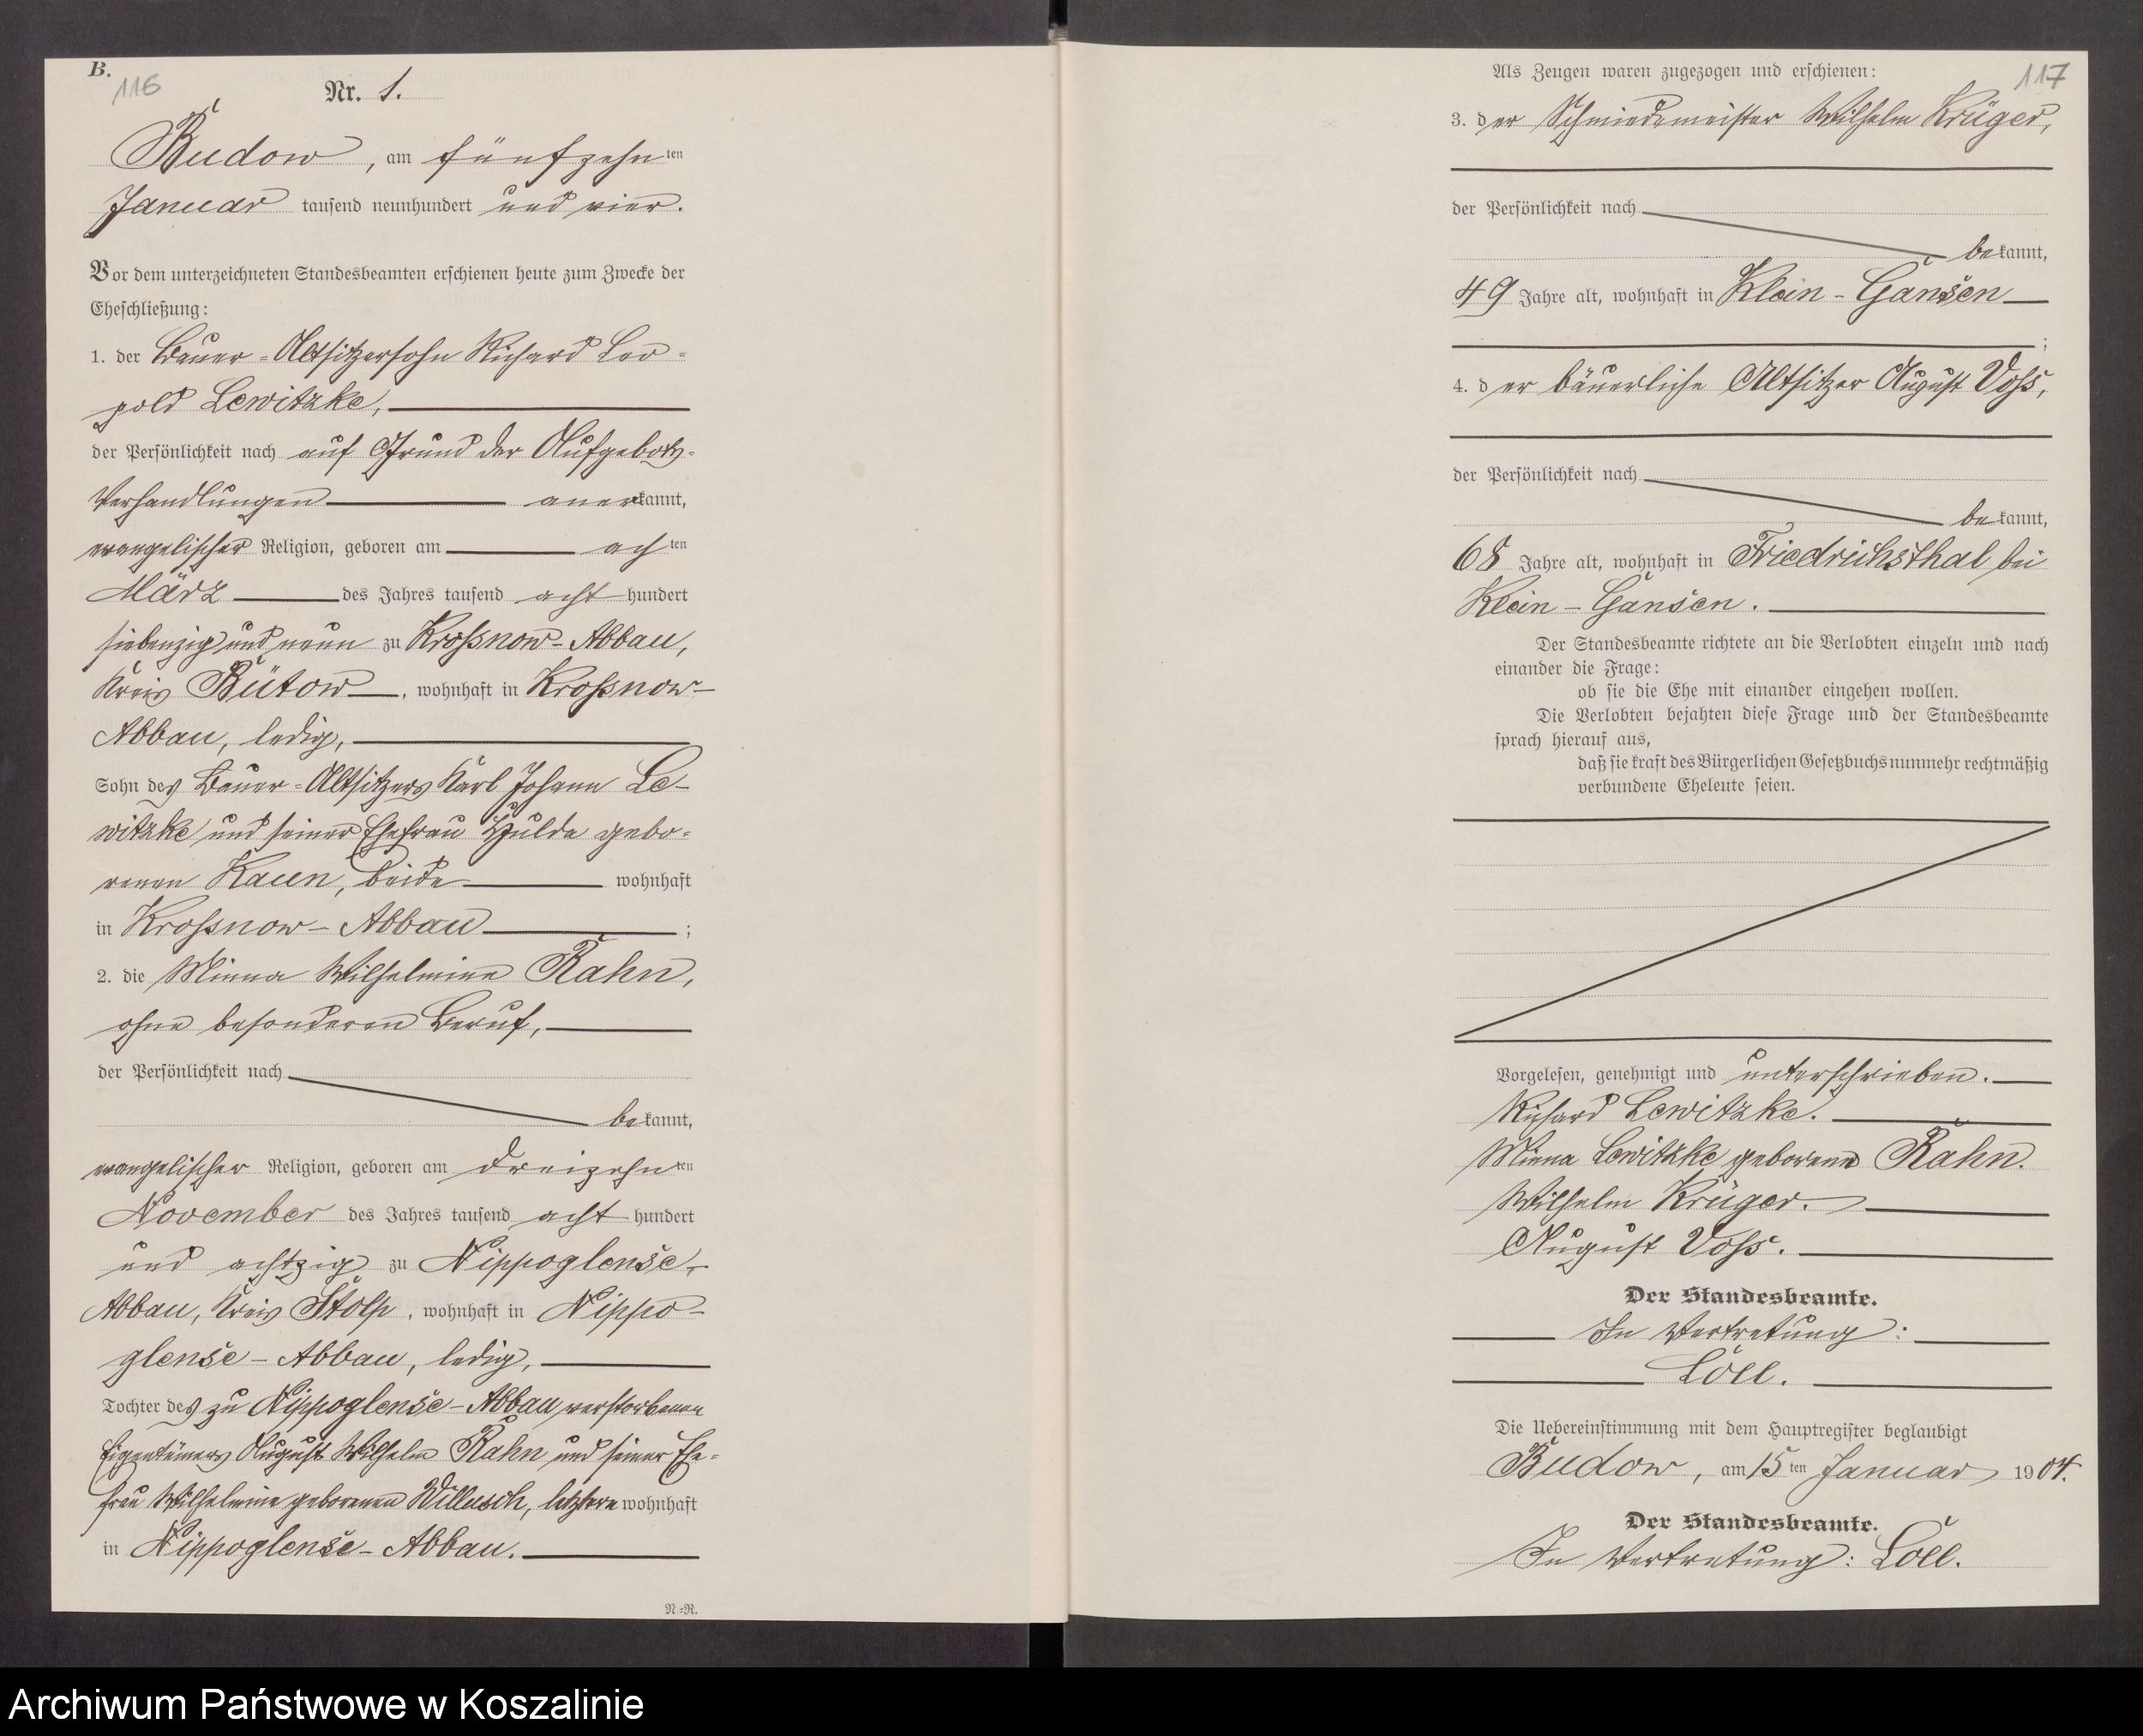 B.
116
Nr. 1.
Budow, am fünfzehnten
Januar tausend neunhundert und vier.
Vor dem unterzeichneten Standesbeamten erschienen heute zum Zwecke der
Eheschließung:
1. der Bauer-Altsitzersohn Richard Leo-
pold Lewitzke,
der Persönlichkeit nach auf Grund der Aufgebots-
Verhandlungen anerkannt,
evangelischer Religion, geboren am achten
März des Jahres tausend acht hundert
siebenzig und neun zu Kroßnow-Abbau,
Kreis Bütow, wohnhaft in Kroßnow-
Abbau, ledig,
Sohn des Bauer-Altsitzers Karl Johann Le-
witzke und seiner Ehefrau Hulda gebo-
renen Kaun, beide wohnhaft
in Kroßnow-Abbau;
2. die Minna Wilhelmine Rahn,
ohne besonderen Beruf,
der Persönlichkeit nach
bekannt,
evangelischer Religion, geboren am dreizehnten
November des Jahres tausend acht hundert
und achtzig zu Nippoglense-
Abbau, Kreis Stolp, wohnhaft in Nippo-
glense-Abbau, ledig,
Tochter des zu Nippoglense-Abbau verstorbenen
Eigentümers August Wilhelm Rahn und seiner Ehe-
frau Wilhelmine geborenen Willusch, letztere wohnhaft
in Nippoglense-Abbau.
N.-R.
Als Zeugen waren zugezogen und erschienen:
117
3. der Schmiedemeister Wilhelm Krüger,
der Persönlichkeit nach
bekannt,
49 Jahre alt, wohnhaft in Klein-Gansen
;
4. der bäuerliche Altsitzer August Voß,
der Persönlichkeit nach
bekannt,
68 Jahre alt, wohnhaft in Friedrichsthal bei
Klein-Gansen.
Der Standesbeamte richtete an die Verlobten einzeln und nach
einander die Frage:
ob sie die Ehe mit einander eingehen wollen.
Die Verlobten bejahten diese Frage und der Standesbeamte
sprach hierauf aus,
daß sie kraft des Bürgerlichen Gesetzbuchs nunmehr rechtmäßig
verbundene Eheleute seien.
Vorgelesen, genehmigt und unterschrieben.
Richard Lewitzke.
Minna Lewitzke geborene Rahn.
Wilhelm Krüger.
August Voß.
Der Standesbeamte.
In Vertretung:
Löll.
Die Uebereinstimmung mit dem Hauptregister beglaubigt
Budow, am 15ten Januar 1904.
Der Standesbeamte.
In Vertretung: Löll.
Archiwum Państwowe w Koszalinie